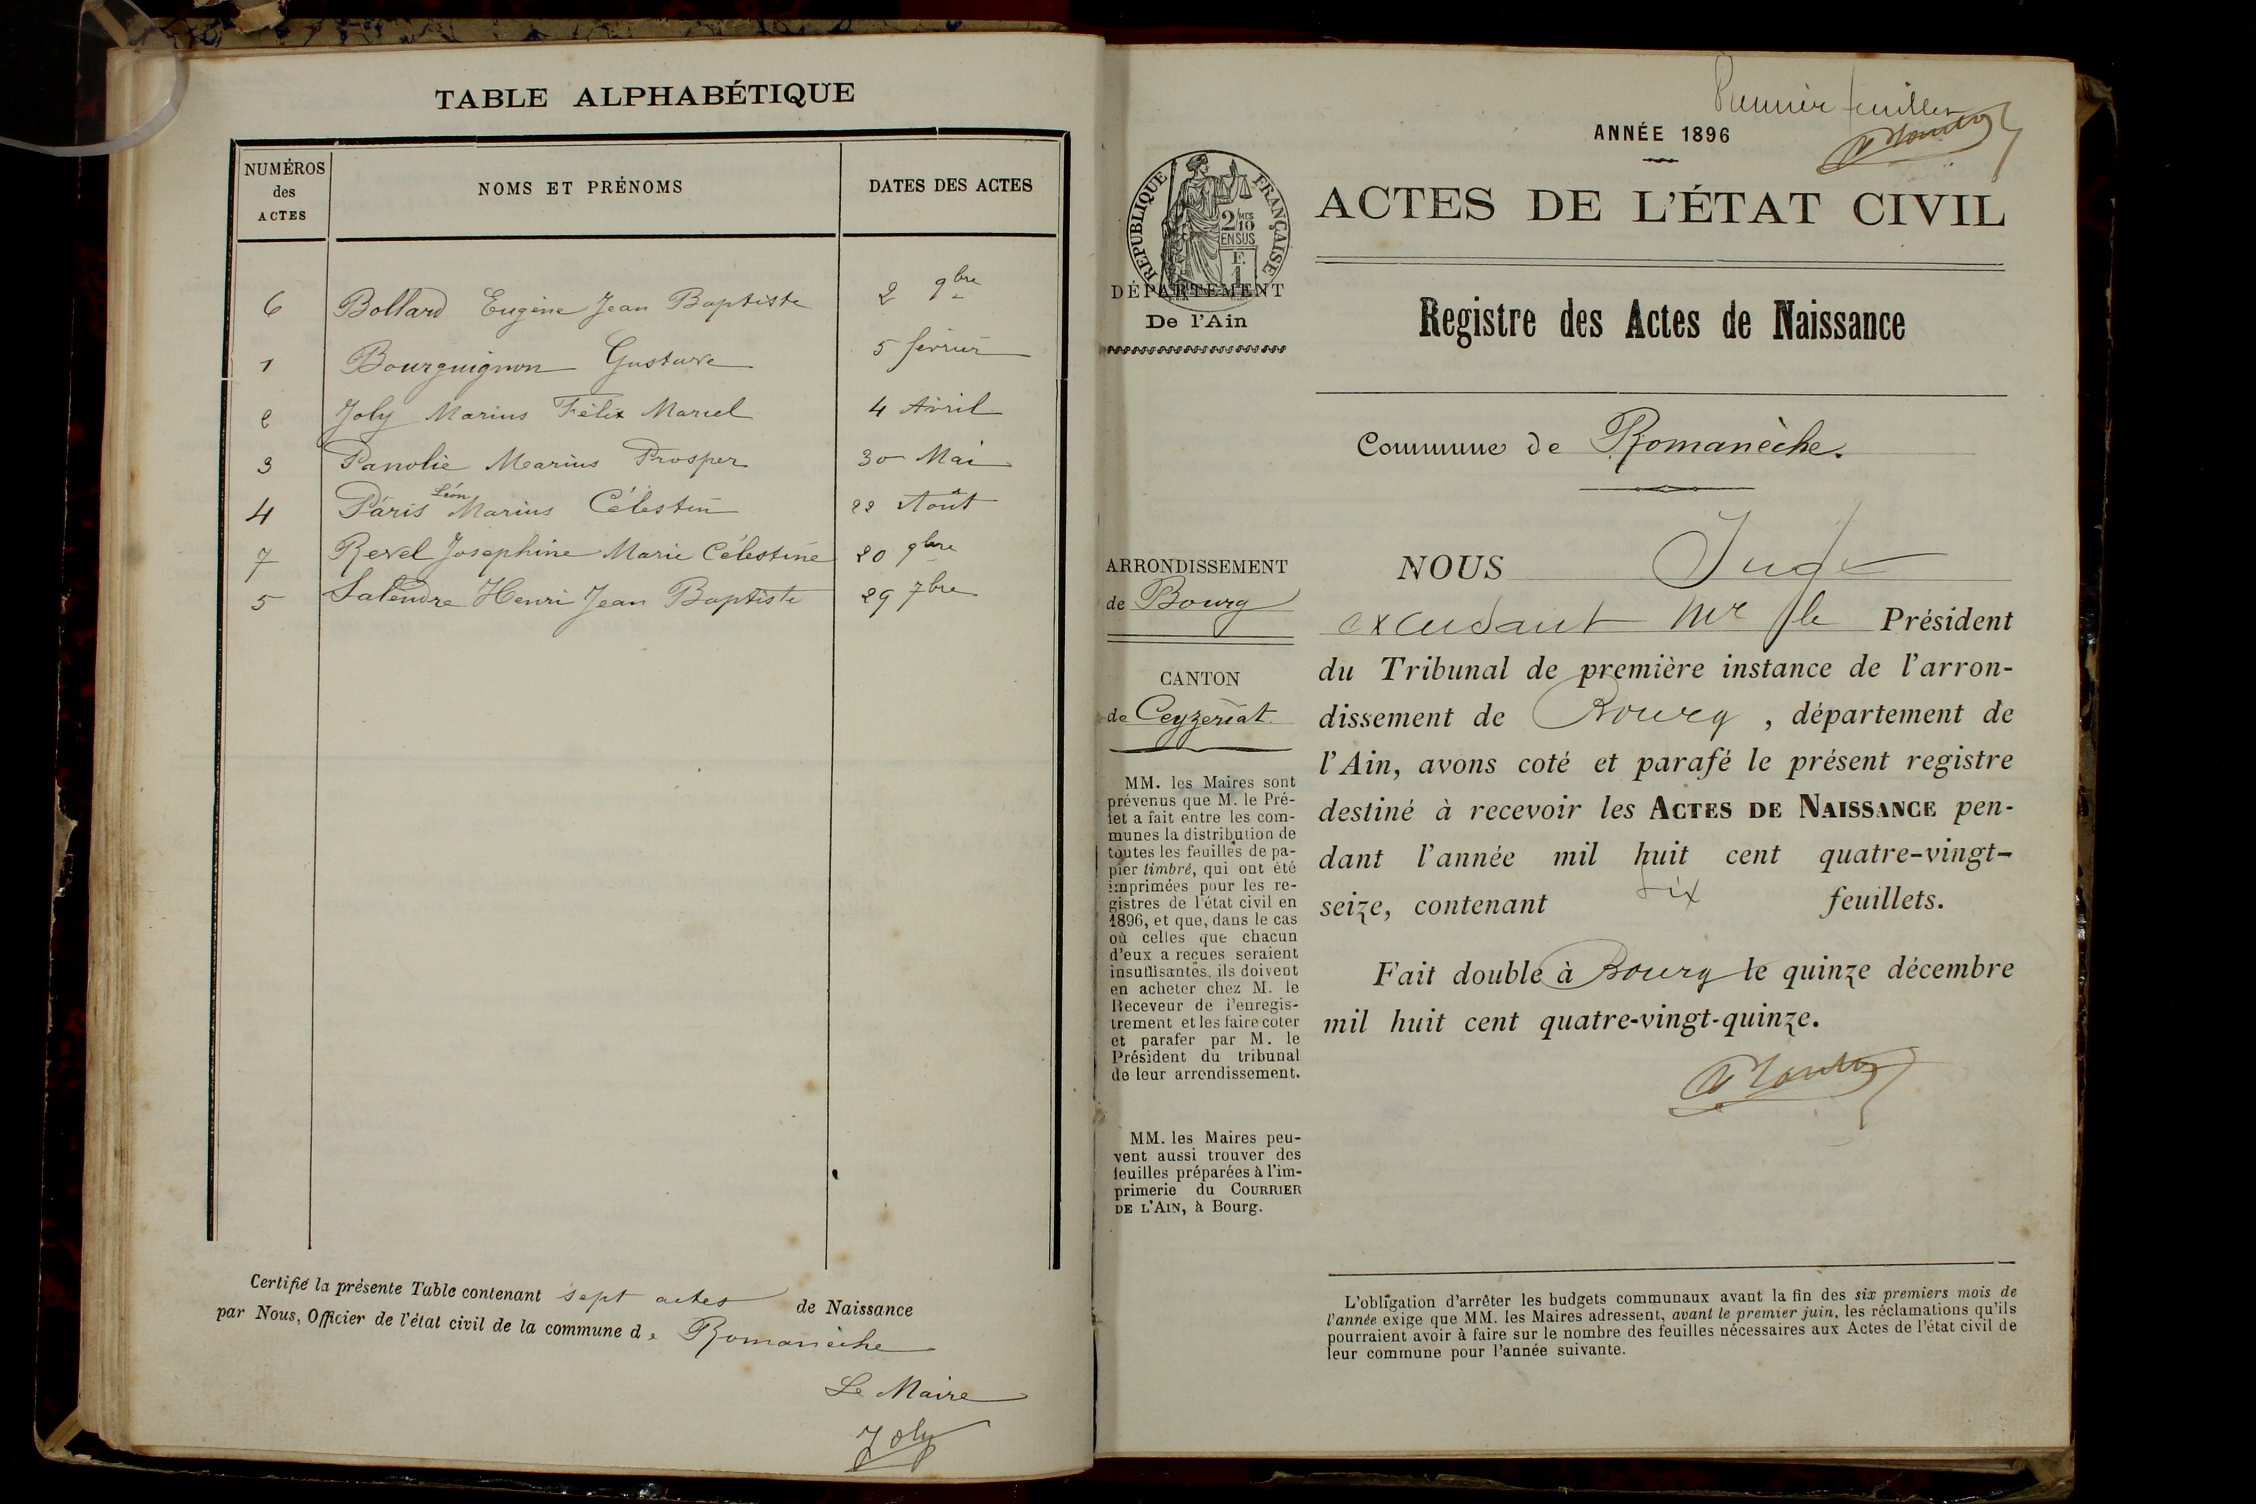 TABLE ALPHABÉTIQUE
NUMÉROS des ACTES NOMS ET PRÉNOMS DATES DES ACTES
6 Bollard Eugène Jean Baptiste 2 9bre
1 Bourguignon Gustave 5 février
2 Joly Marius Félix Marcel 4 Avril
3 Panolie Marius Prosper 30 Mai
4 Pâris Léon Marius Célestin 22 Août
7 Revel Josephine Marie Célestine 20 9bre
5 Salendre Henri Jean Baptiste 29 7bre
Certifié la présente Table contenant sept actes de Naissance
par Nous, Officier de l'état civil de la commune de Romanèche
Le Maire
Joly
Premier feuillet
ANNÉE 1896
RÉPUBLIQUE FRANÇAISE
2/10 EN SUS
F. 1
ACTES DE L'ÉTAT CIVIL
DÉPARTEMENT
De l'Ain
Registre des Actes de Naissance
Commune de Romanèche.
ARRONDISSEMENT
de Bourg
CANTON
de Ceyzeriat
MM. les Maires sont
prévenus que M. le Pré-
fet a fait entre les com-
munes la distribution de
toutes les feuilles de pa-
pier timbré, qui ont été
imprimées pour les re-
gistres de l'état civil en
1896, et que, dans le cas
où celles que chacun
d'eux a reçues seraient
insuffisantes, ils doivent
en acheter chez M. le
Receveur de l'enregis-
trement et les faire coter
et parafer par M. le
Président du tribunal
de leur arrondissement.
MM. les Maires peu-
vent aussi trouver des
feuilles préparées à l'im-
primerie du COURRIER
DE L'AIN, à Bourg.
NOUS Juge
excusant Mr le Président
du Tribunal de première instance de l'arron-
dissement de Bourg, département de
l'Ain, avons coté et parafé le présent registre
destiné à recevoir les ACTES DE NAISSANCE pen-
dant l'année mil huit cent quatre-vingt-
seize, contenant six feuillets.
Fait double à Bourg le quinze décembre
mil huit cent quatre-vingt-quinze.
L'obligation d'arrêter les budgets communaux avant la fin des six premiers mois de
l'année exige que MM. les Maires adressent, avant le premier juin, les réclamations qu'ils
pourraient avoir à faire sur le nombre des feuilles nécessaires aux Actes de l'état civil de
leur commune pour l'année suivante.